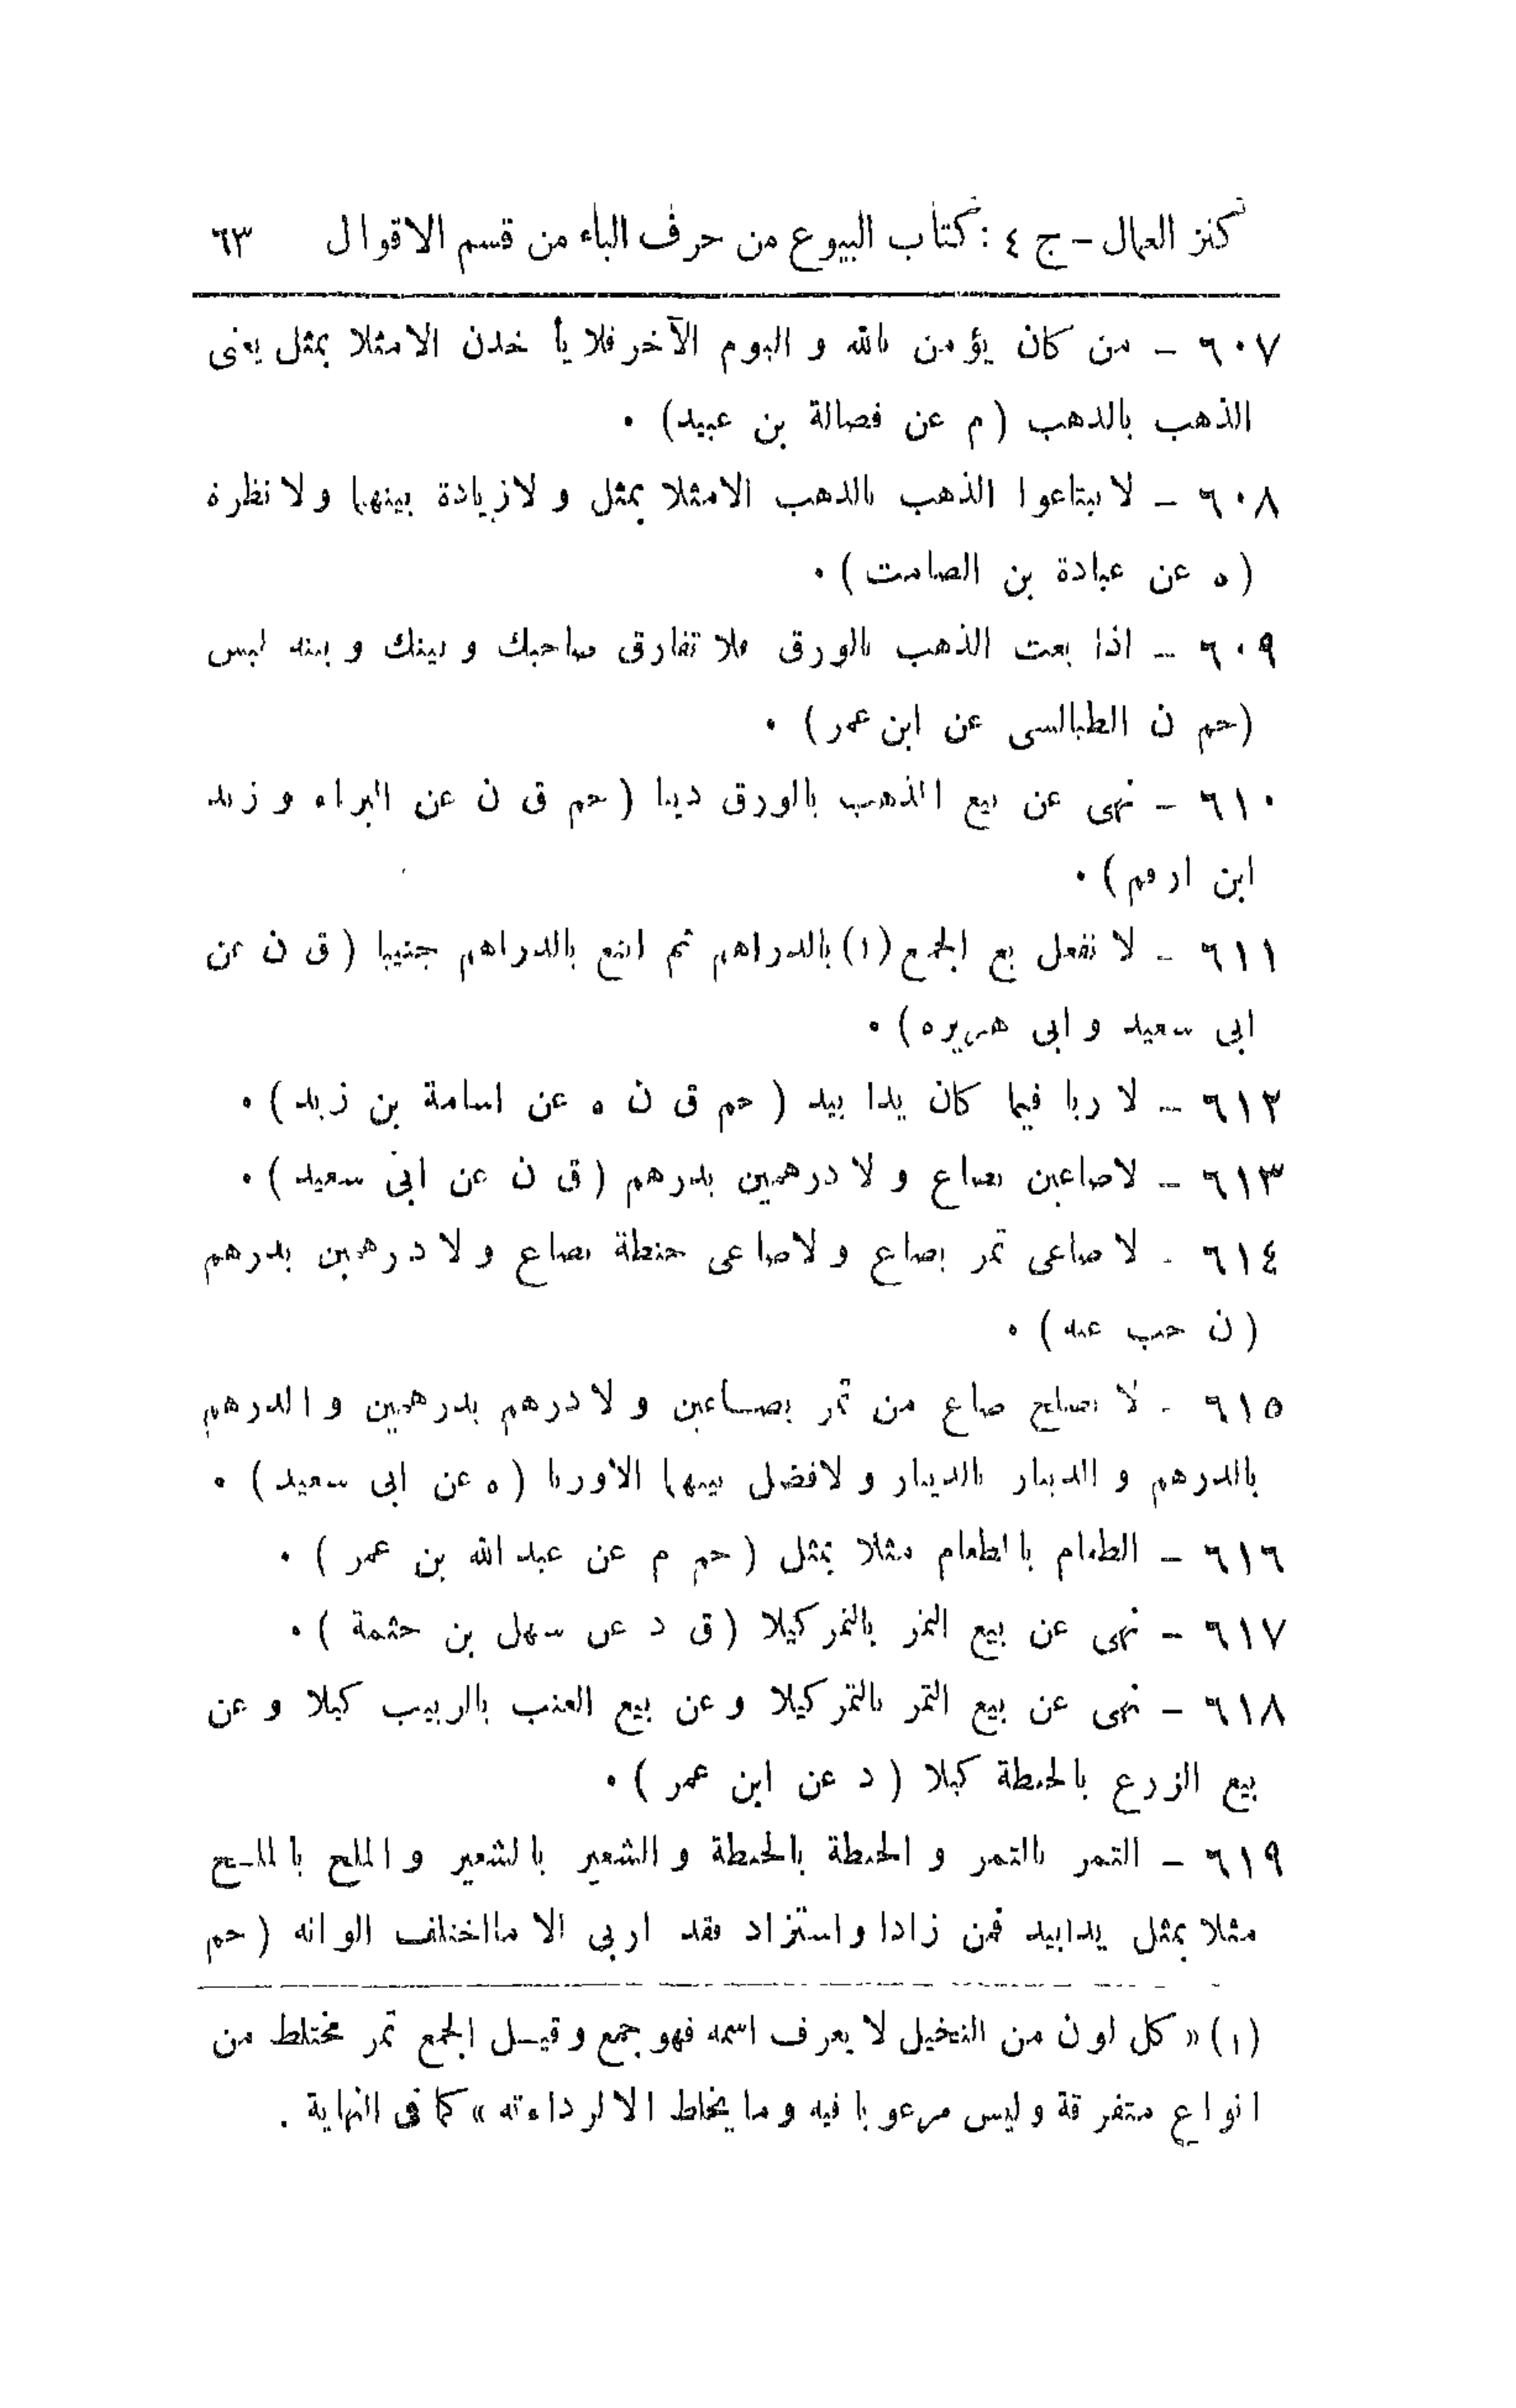 كنز العمال - ج ٤ : كتاب البيوع من حرف الباء من قسم الاقوال ٦٣
٦٠٧ - من كان يؤمن بالله و اليوم الآخر فلا يأ خذن الا مثلا بمثل يعنى
الذهب بالذهب ( م عن فضالة بن عبيد) ٠
٦٠٨ - لا تبتاعوا الذهب بالذهب الا مثلا بمثل و لا زيادة بينهما و لا نظرة
( ه عن عبادة بن الصامت ) ٠
٦٠٩ - اذا بعت الذهب بالورق فلا تفارق صاحبك و بينك و بينه لبس
(حم ن الطيالسى عن ابن عمر) ٠
٦١٠ - نهى عن بيع الذهب بالورق دينا ( حم ق ن عن البراء و زيد
ابن ارقم ) ٠
٦١١ - لا تفعل بع الجمع (١) بالدراهم ثم ابتع بالدراهم جنيبا ( ق ن عن
ابى سعيد و ابى هريره ) ٠
٦١٢ - لا ربا فيما كان يدا بيد ( حم ق ن ه عن اسامة بن زيد ) ٠
٦١٣ - لا صاعين بصاع و لا درهمين بدرهم ( ق ن عن ابى سعيد ) ٠
٦١٤ - لا صاعى تمر بصاع و لا صاعى حنطة بصاع و لا درهمين بدرهم
( ن حب عنه ) ٠
٦١٥ - لا يصلح صاع من تمر بصاعين و لا درهم بدرهمين و الدرهم
بالدرهم و الدينار بالدينار و لا فضل بينهما الا وزنا ( ه عن ابى سعيد ) ٠
٦١٦ - الطعام بالطعام مثلا بمثل ( حم م عن عبد الله بن عمر ) ٠
٦١٧ - نهى عن بيع التمر بالتمر كيلا ( ق د عن سهل بن حثمة ) ٠
٦١٨ - نهى عن بيع التمر بالتمر كيلا و عن بيع العنب بالزبيب كيلا و عن
بيع الزرع بالحنطة كيلا ( د عن ابن عمر ) ٠
٦١٩ - التمر بالتمر و الحنطة بالحنطة و الشعير بالشعير و الملح بالملح
مثلا بمثل يدا بيد فمن زاد او استزاد فقد اربى الا ما اختلف الوانه ( حم
(١) « كل لون من النخيل لا يعرف اسمه فهو جمع و قيل الجمع تمر مختلط من
انواع متفرقة و ليس مرغوبا فيه و ما يخلط الا لرداءته » كما فى النهاية .